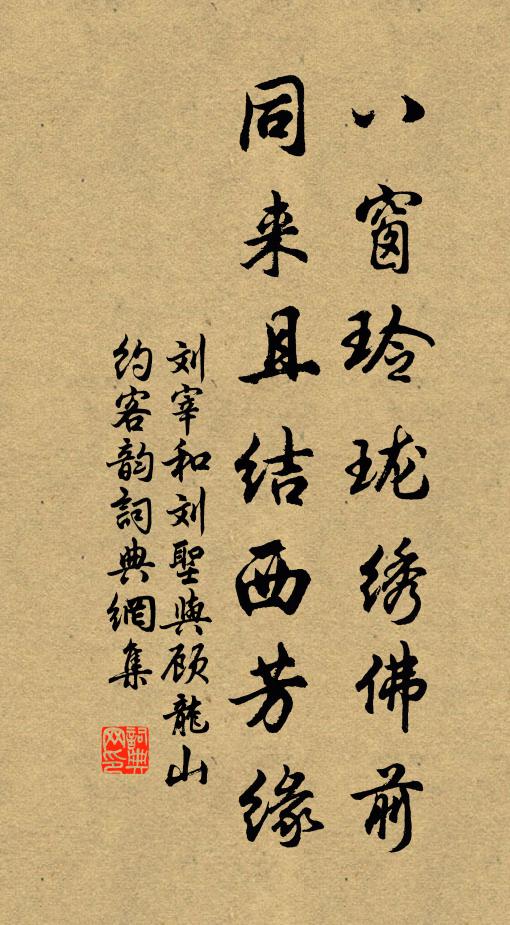 八窗玲珑绣佛前
同来且结西芳缘
刘宰和刘聖與顾龍山
约客韵詞典網集
詞典网印